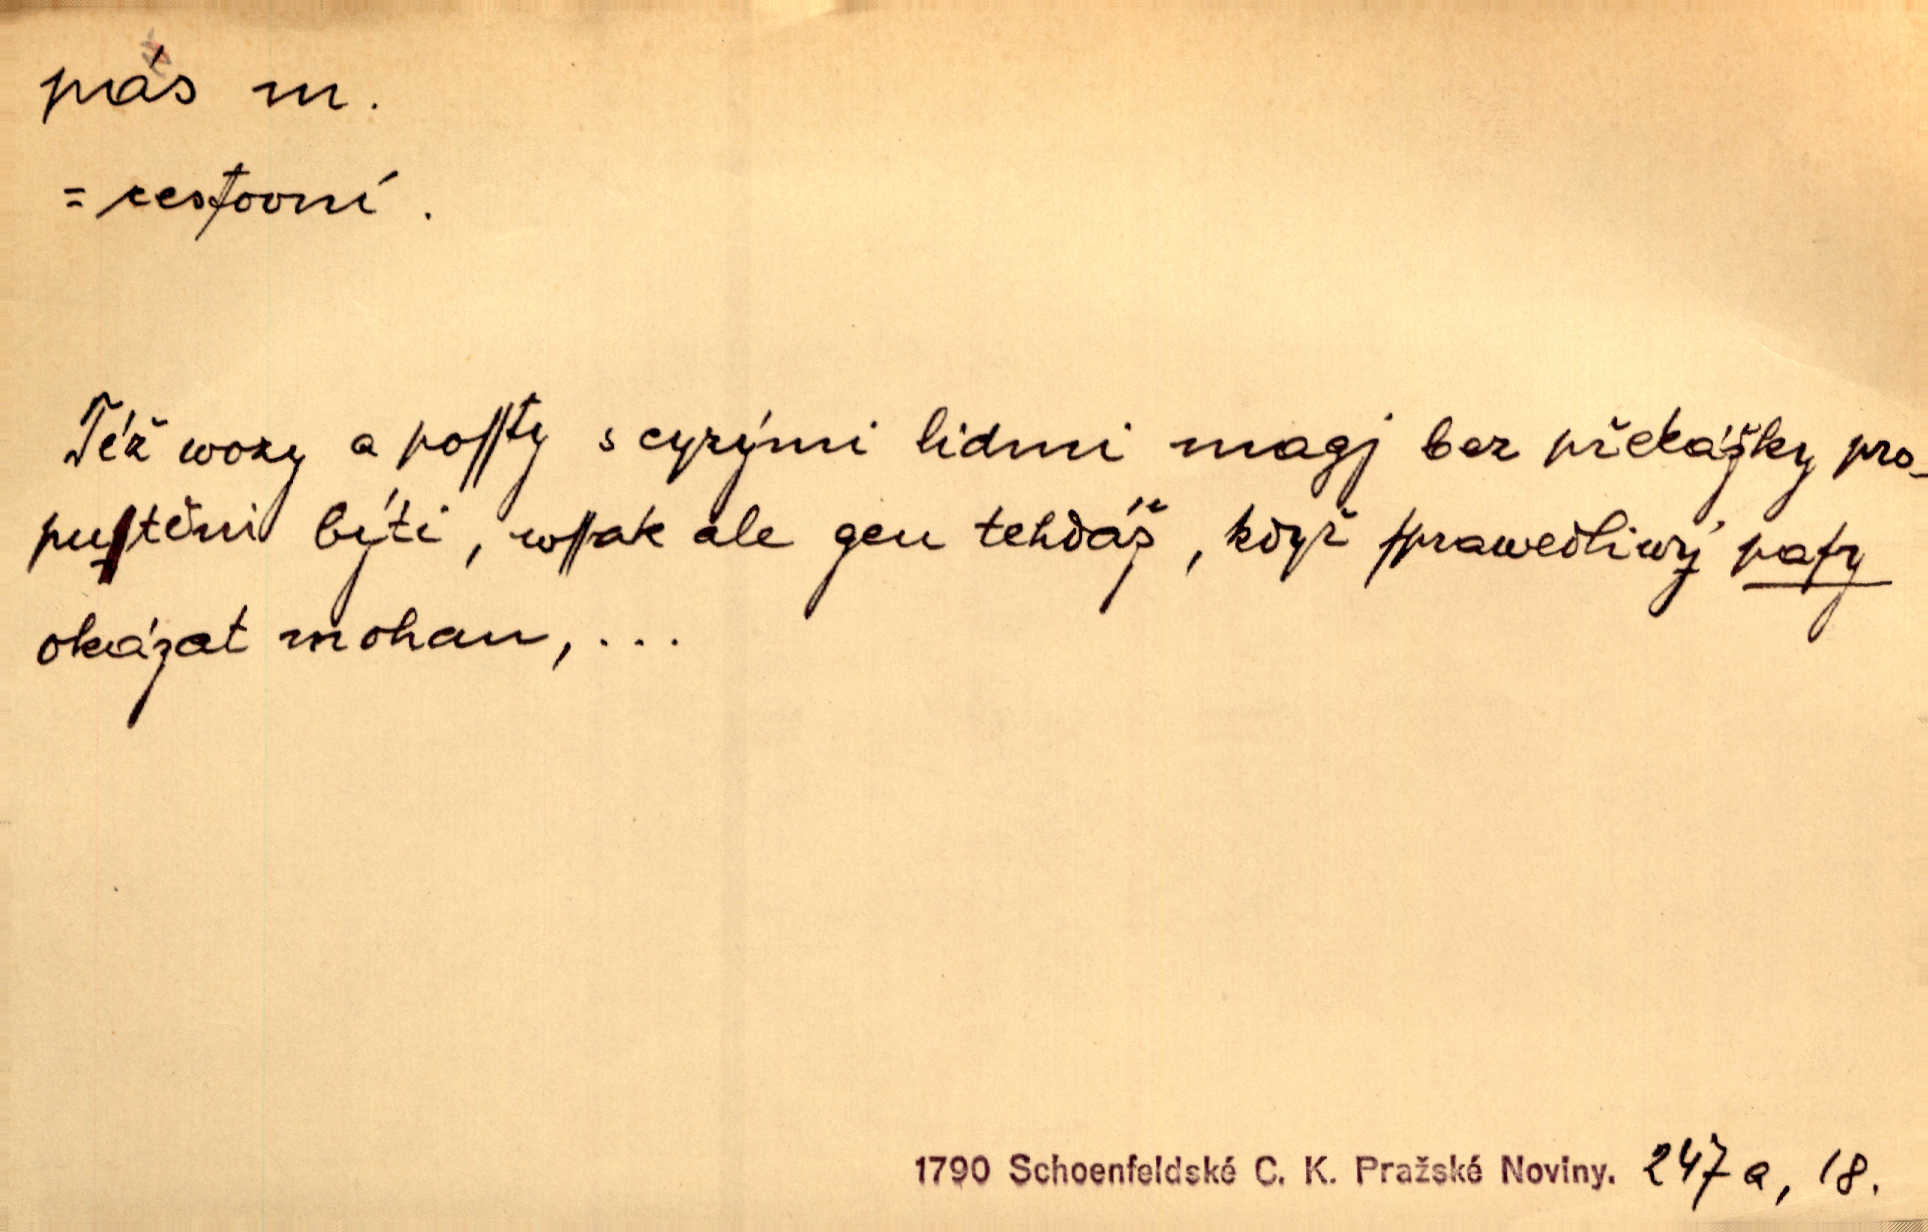 pás m.
= cestovní.
Též wozy a poſſty s cyzými lidmi magj bez překážky pro-
puſtěni býti, wſſak ale gen tehdáž, když ſprawedliwý paſy
okázat mohau, ...
1790 Schoenfeldské C. K. Pražské Noviny. 247a, 18.